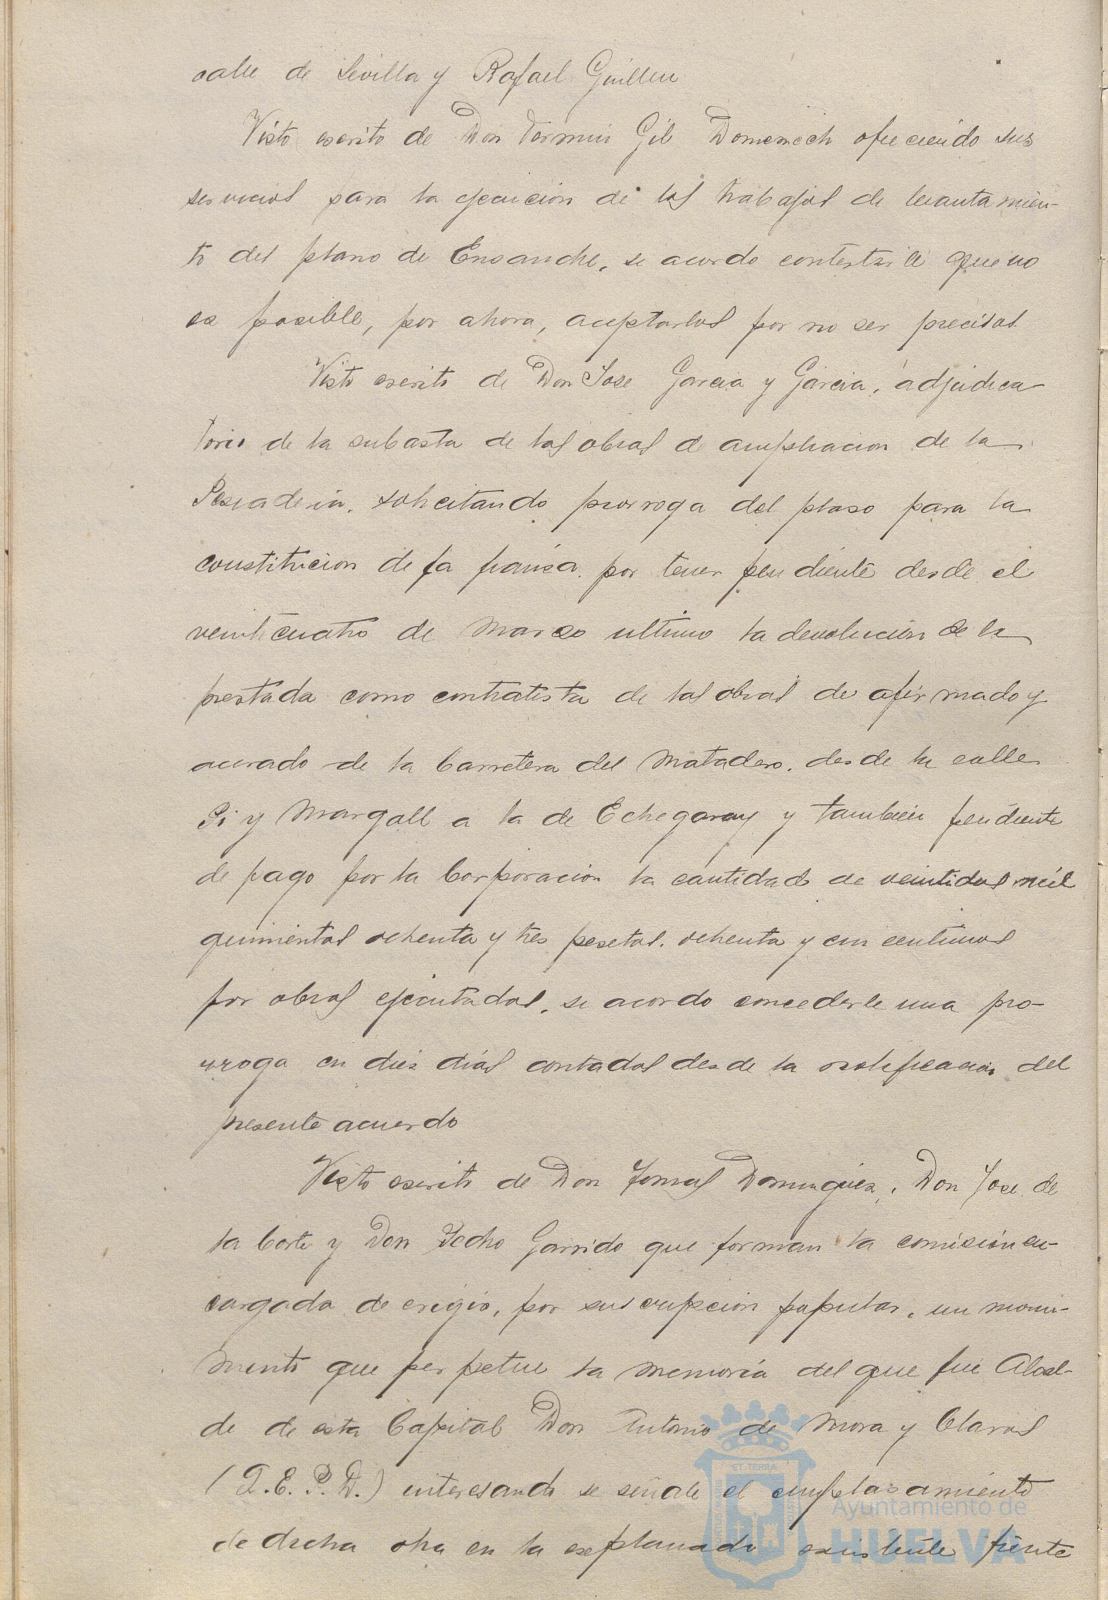 calle de Sevilla y Rafael Guillen
Visto escrito de Don Fermin Gil Domenech ofreciendo sus
servicios para la ejecucion de los trabajos de levantamien-
to del plano de Ensanche, se acordo contestarle que no
es posible, por ahora, aceptarlos por no ser precisos
Visto escrito de Don Jose Garcia y Garcia, adjudica
torio de la subasta de las obras de ampliacion de la
Pescaderia, solicitando prorroga del plaso para la
constitucion de la fianza por tener pendiente desde el
veinticuatro de Marzo ultimo la devolucion de la
prestada como contratista de las obras de afirmado y
acerado de la Carretera del Matadero, desde la calle
Pi y Margall a la de Echegaray y tambien pendiente
de pago por la Corporacion la cantidad de veintidos mil
quinientas ochenta y tres pesetas, ochenta y un centimos
por obras ejecutadas, se acordo concederle una pro-
rroga en diez dias contados desde la notificacion del
presente acuerdo
Visto escrito de Don Tomas Dominguez, Don Jose de
la Corte y Don Pedro Garrido que forman la comision en-
cargada de erigir, por suscripcion popular, un monu-
mento que perpetue la memoria del que fue Alcal-
de de esta Capital Don Antonio de Mora y Claros
(Q.E.P.D.) interesando se señale el emplazamiento
de dicha obra en la explanada existente frente
ET TERRA
Ayuntamiento de
HUELVA